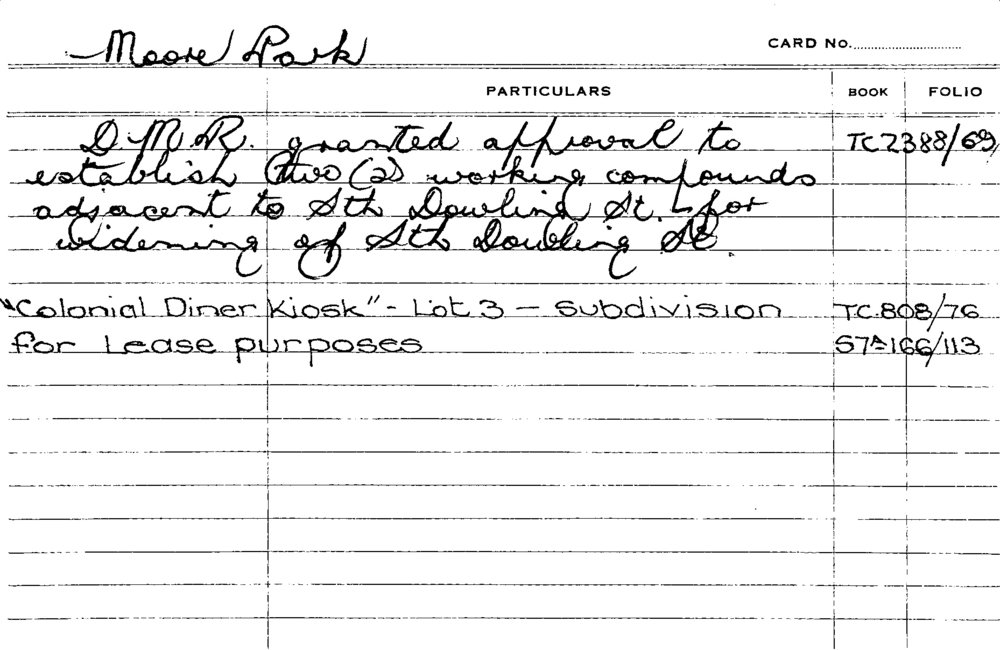 Moore Park
CARD No.
PARTICULARS BOOK FOLIO
D.M.R. granted approval to TC2388/69
establish two (2) working compounds
adjacent to Sth Dowling St. - for
widening of Sth Dowling St.
"Colonial Diner Kiosk" - Lot 3 - Subdivision T.C. 808/76
for Lease purposes S7A166/113